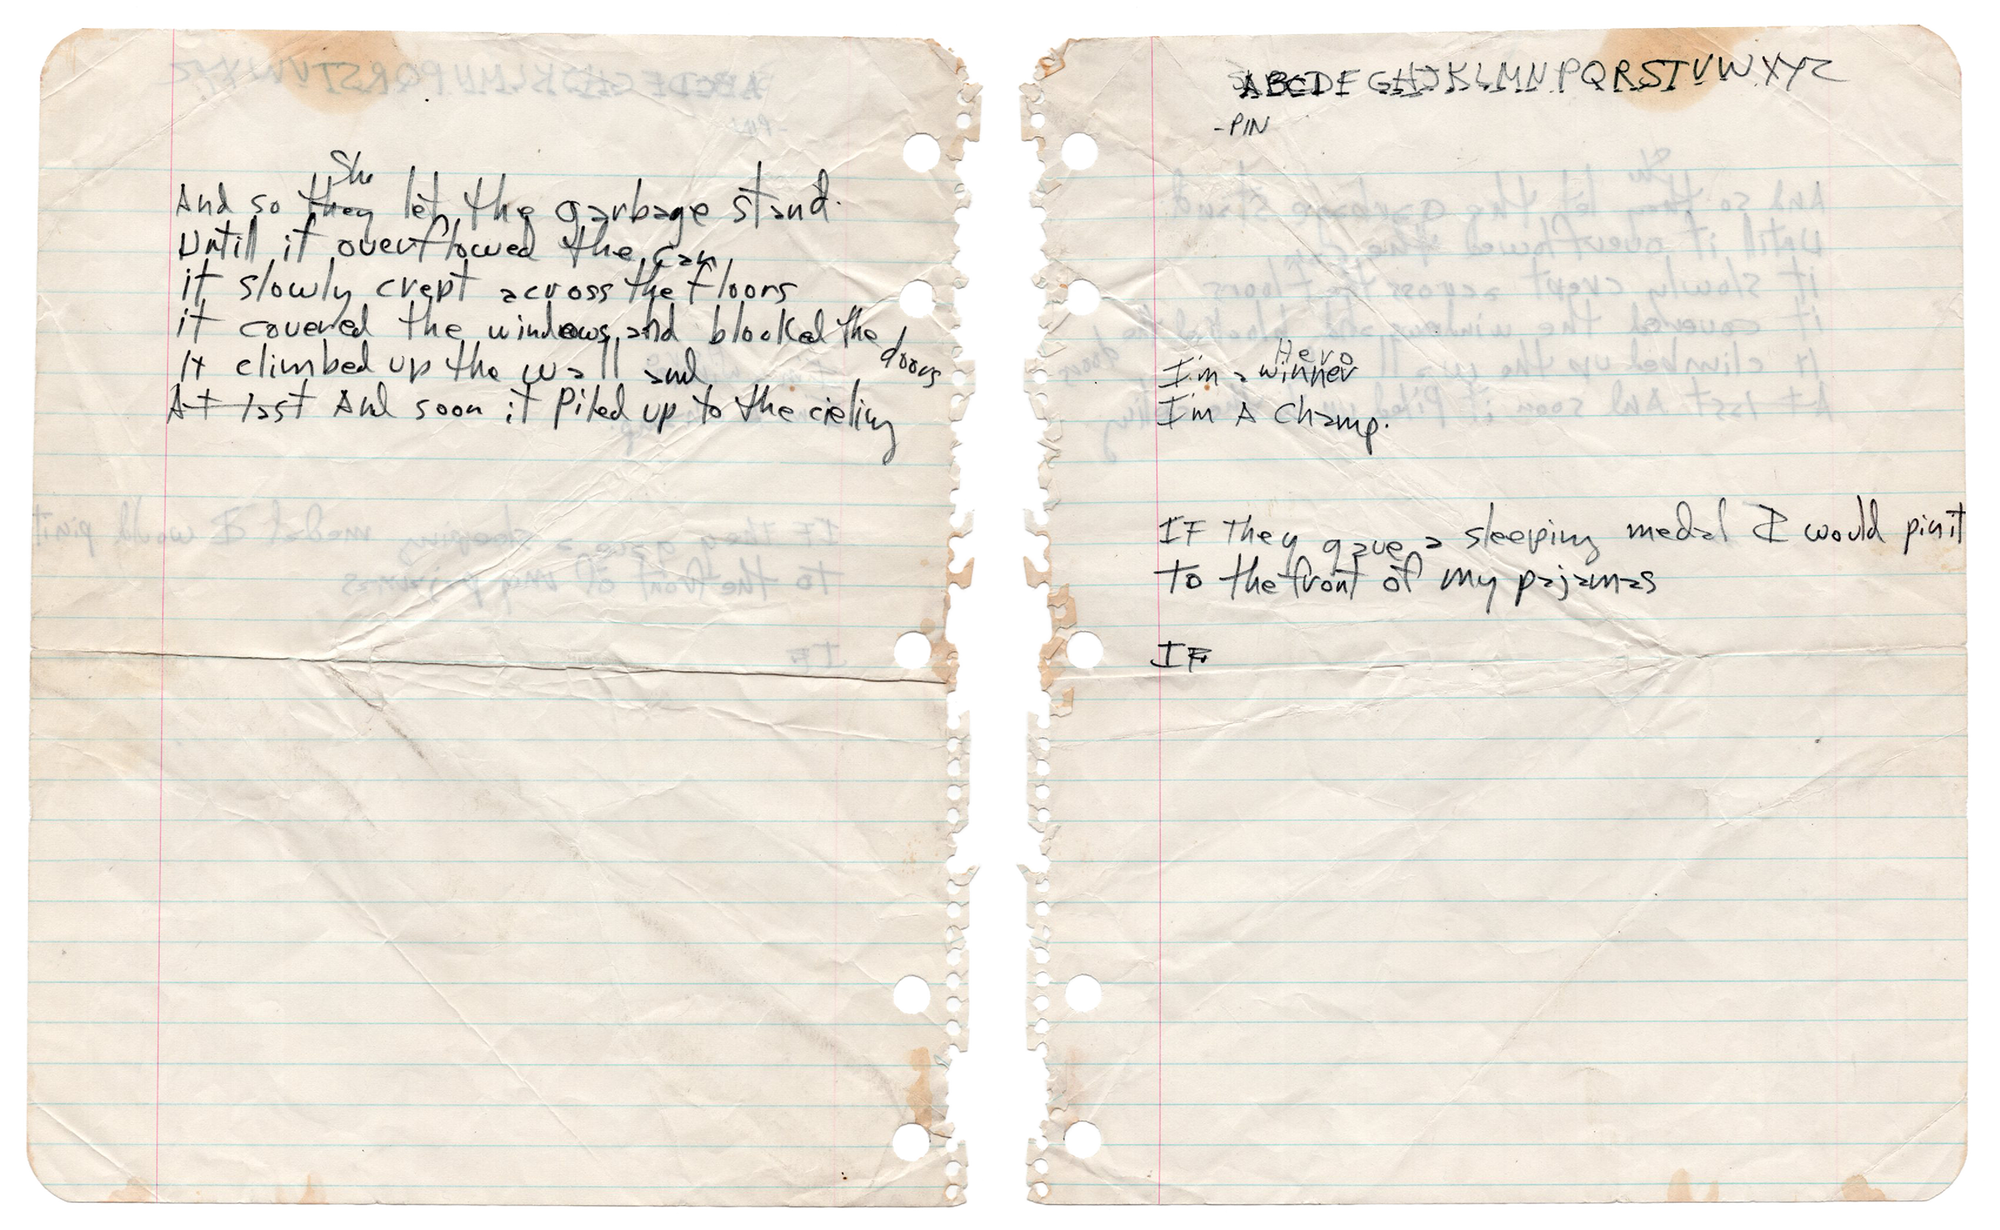 She
And so they let the garbage stand.
Until it overflowed the can
it slowly crept across the floors
it covered the windows and blocked the doors
It climbed up the wall and
At last And soon it Piled up to the cieling
ABCDEFGHJKLMNPQRSTVWXYZ
-PIN
Hero
I'm a winner
I'm A Champ.
IF They gave a sleeping medal I would pin it
To the front of my pajamas
IF